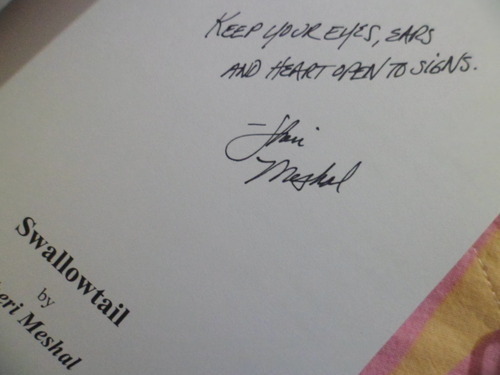 KEEP YOUR EYES, EARS
AND HEART OPEN TO SIGNS.
Meshal
Swallowtail
by
eri Meshal